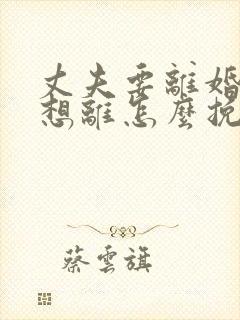 丈夫要離婚
想離怎麼挽
蔡雲旗